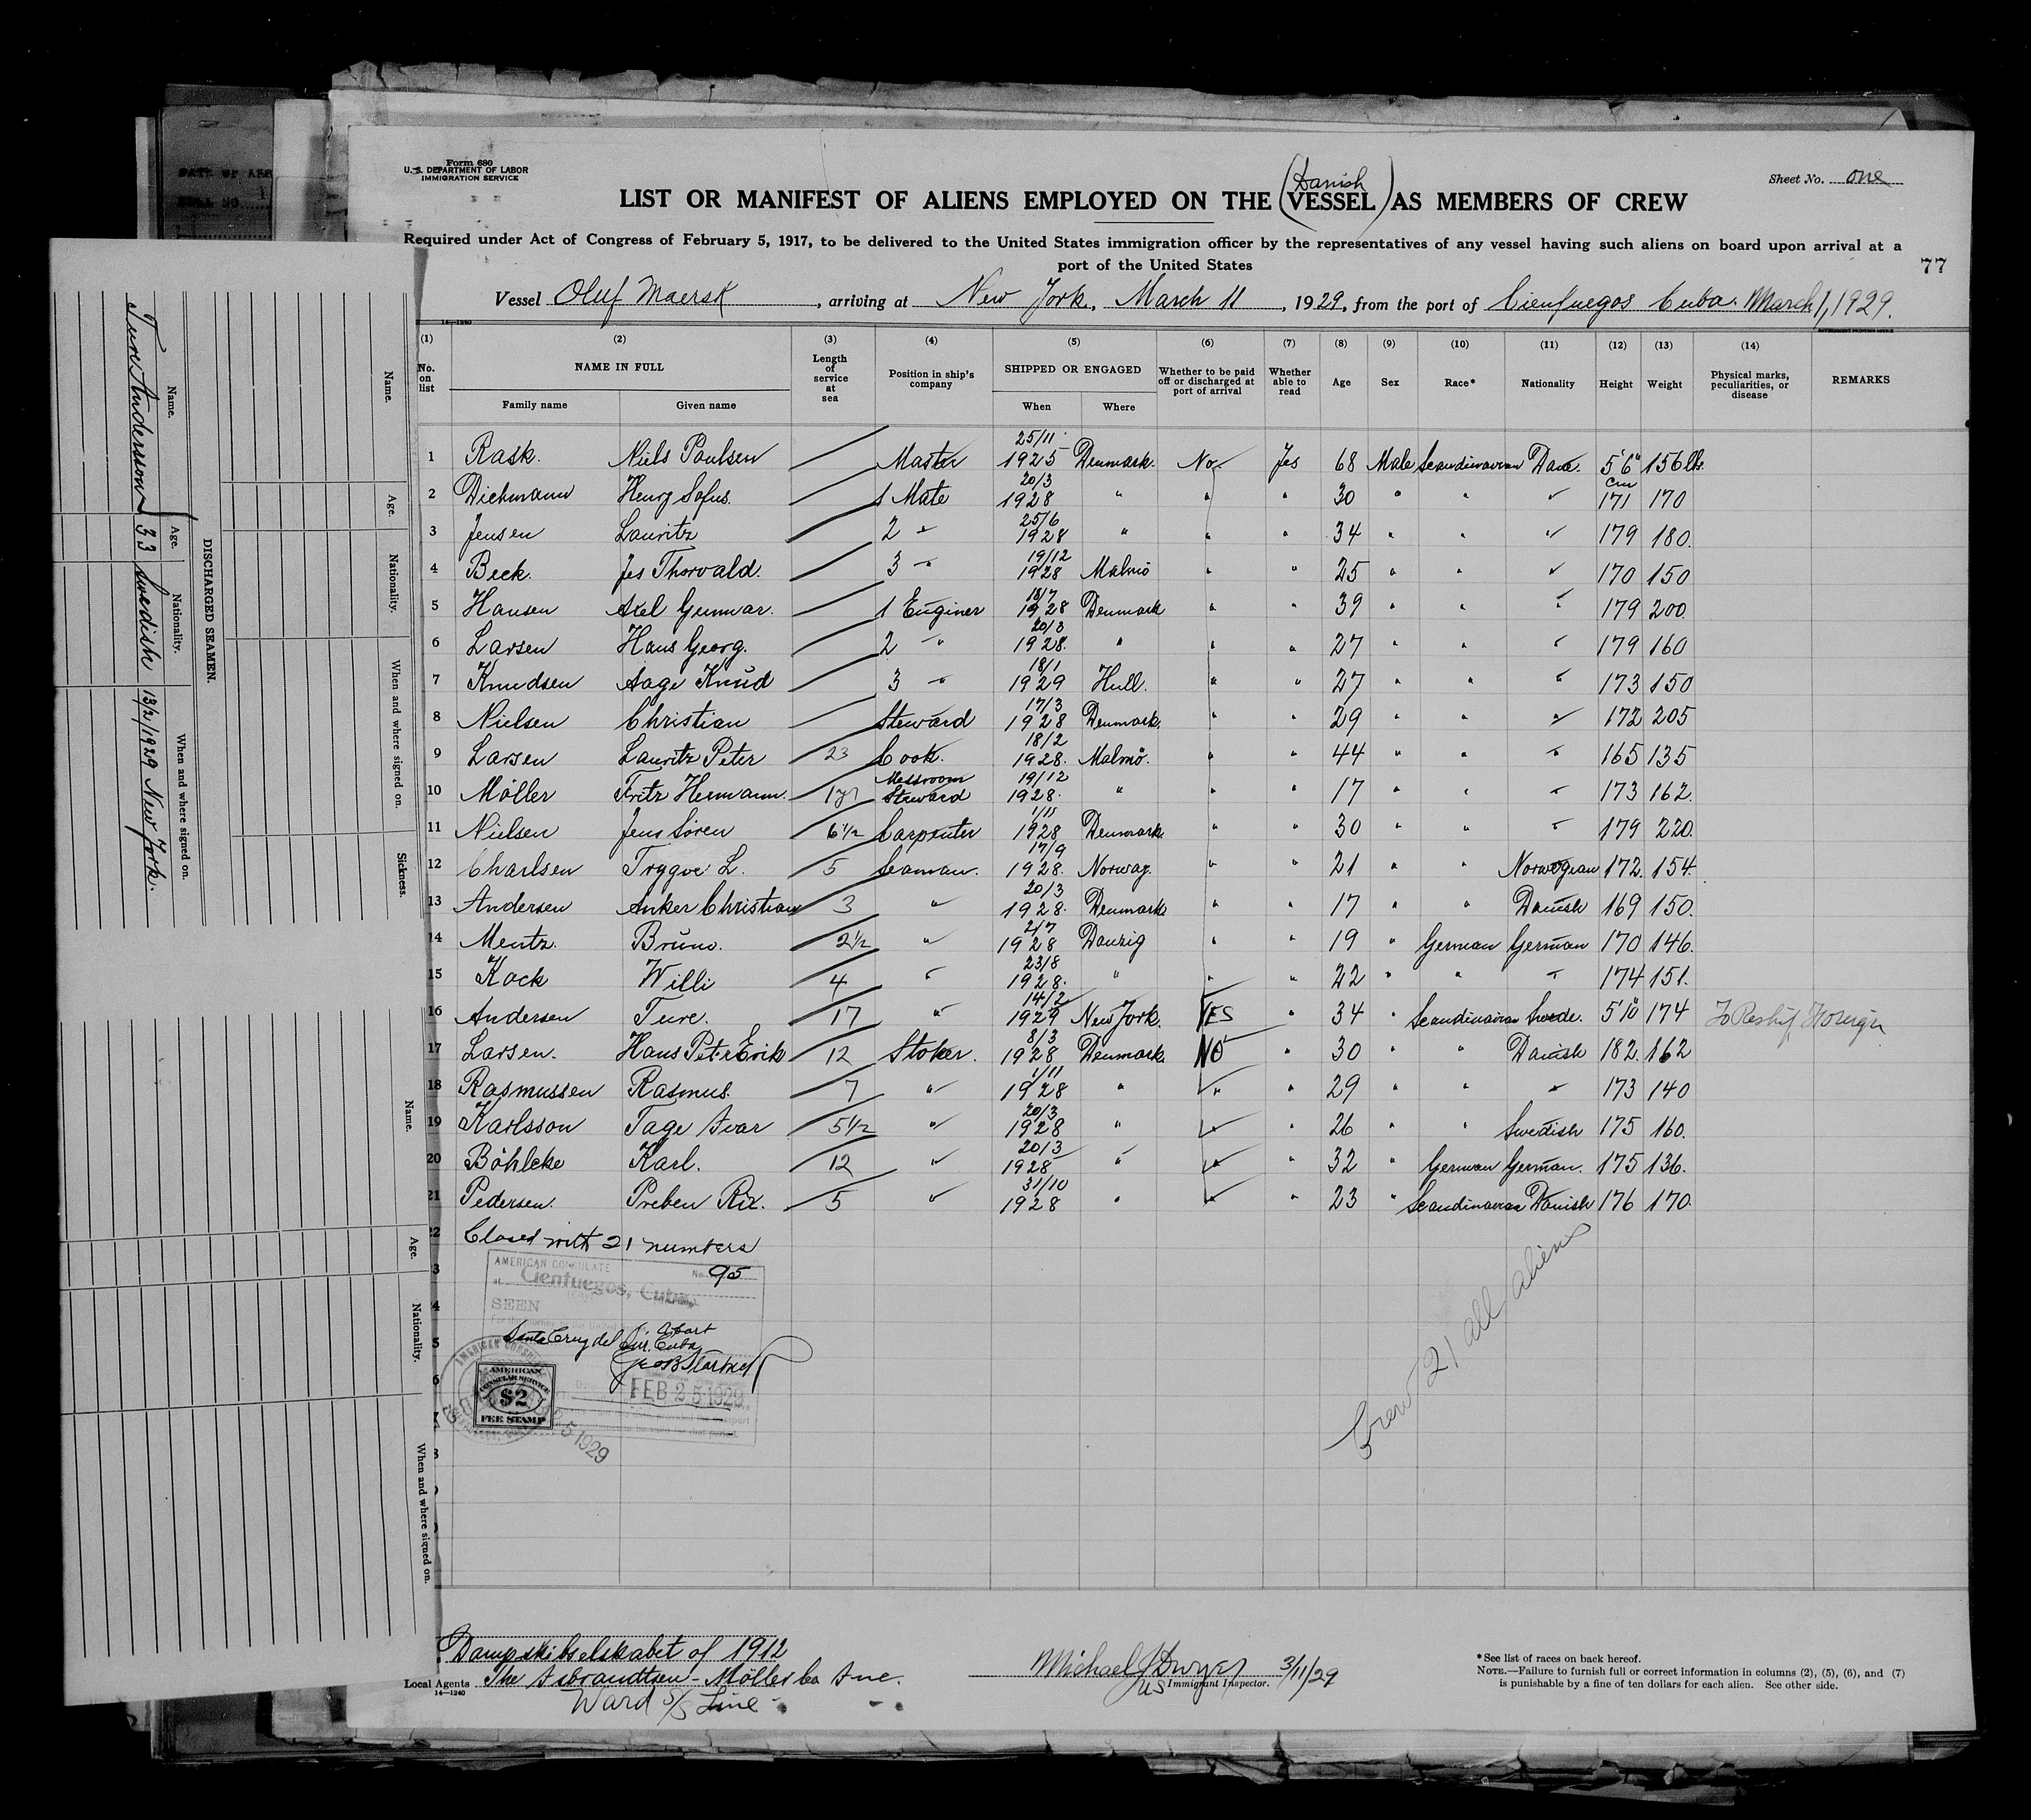 Form 680
U. S. DEPARTMENT OF LABOR
IMMIGRATION SERVICE
Sheet No. one
Danish
LIST OR MANIFEST OF ALIENS EMPLOYED ON THE (VESSEL) AS MEMBERS OF CREW
Required under Act of Congress of February 5, 1917, to be delivered to the United States immigration officer by the representatives of any vessel having such aliens on board upon arrival at a
port of the United States
77
Vessel Oluf Maersk, arriving at New York, March 11, 1929, from the port of Cienfuegos Cuba. March 1, 1929.
14—1240
(1) (2) (3) (4) (5) (6) (7) (8) (9) (10) (11) (12) (13) (14)
No. on list NAME IN FULL Length of service at sea Position in ship's company SHIPPED OR ENGAGED Whether to be paid off or discharged at port of arrival Whether able to read Age Sex Race* Nationality Height Weight Physical marks, peculiarities, or disease REMARKS
Family name Given name When Where
1 Rask. Niels Poulsen Master 25/11 1925 Denmark. No Yes 68 Male Scandinavian Dane. 5'6" 156 lbs.
2 Diehmann Henry Sofus. 1 Mate 20/3 1928 " " " 30 " " " cm 171 170
3 Jensen Lauritz 2 " 25/6 1928 " " " 34 " " " 179 180.
4 Beck. Jes Thorvald. 3 " 19/12 1928 Malmö " " 25 " " " 170 150
5 Hansen Axel Gunnar. 1 Enginer 18/7 1928 Denmark " " 39 " " " 179 200.
6 Larsen Hans Georg. 2 " 20/3 1928. " " " 27 " " " 179 160
7 Knudsen Aage Knud 3 " 18/1 1929 Hull. " " 27 " " " 173 150
8 Nielsen Christian Steward 17/3 1928 Denmark. " " 29 " " " 172 205
9 Larsen Lauritz Peter 23 Cook. 18/2 1928. Malmö. " " 44 " " " 165 135
10 Möller Fritz Hermann. Messroom Steward 19/12 1928. " " " 17 " " " 173 162.
11 Nielsen Jens Sören 6 1/2 Carpenter 1/11 1928 Denmark. " " 30 " " " 179 220.
12 Charlsen Trygve L. 5 Seaman. 17/9 1928. Norway. " " 21 " " Norwegian 172. 154.
13 Andersen Anker Christian 3 " 20/3 1928. Denmark " " 17 " " Danish 169 150.
14 Mentz. Bruno. 2 1/2 " 2/7 1928 Danzig " " 19 " German German 170 146.
15 Kock Willi 4 " 23/8 1928. " " " 22 " " " 174 151.
16 Andersen Ture. 17 " 14/2 1929 New York. YES " 34 " Scandinavian Swede. 5'10" 174 To Reship Foreign
17 Larsen. Hans Peter Erik 12 Stoker. 8/3 1928 Denmark. NO " 30 " " Danish 182. 162
18 Rasmussen Rasmus. 7 " 1/11 1928 " " " 29 " " " 173 140
19 Karlsson Tage Ivar 5 1/2 " 20/3 1928 " " " 26 " " Swedish 175 160.
20 Böhlcke Karl. 12 " 20/3 1928 " " " 32 " German German. 175 136.
21 Pedersen. Preben Rix. 5 " 31/10 1928 " " " 23 " Scandinavian Danish 176 170.
Closed with 21 numbers
AMERICAN CONSULATE
No. 95
at Cienfuegos, Cuba,
SEEN
Santa Cruz del Sur, Cuba
FEB 25 1929
AMERICAN
CONSULAR SERVICE
$2
FEE STAMP
Crew 21 all aliens
Dampskibselskabet of 1912
Local Agents The Isbrandtsen-Möller Co Inc.
14—1240
Ward S/S Line
Michael J Dwyer 3/11/29
US Immigrant Inspector.
* See list of races on back hereof.
NOTE.—Failure to furnish full or correct information in columns (2), (5), (6), and (7)
is punishable by a fine of ten dollars for each alien. See other side.
DISCHARGED SEAMEN.
Name. Age. Nationality. When and where signed on.
Ture Andersson 33 Swedish 13/2/1929 New York.
Name. Age. Nationality. When and where signed on. Sickness.
Name. Age. Nationality. When and where signed on.